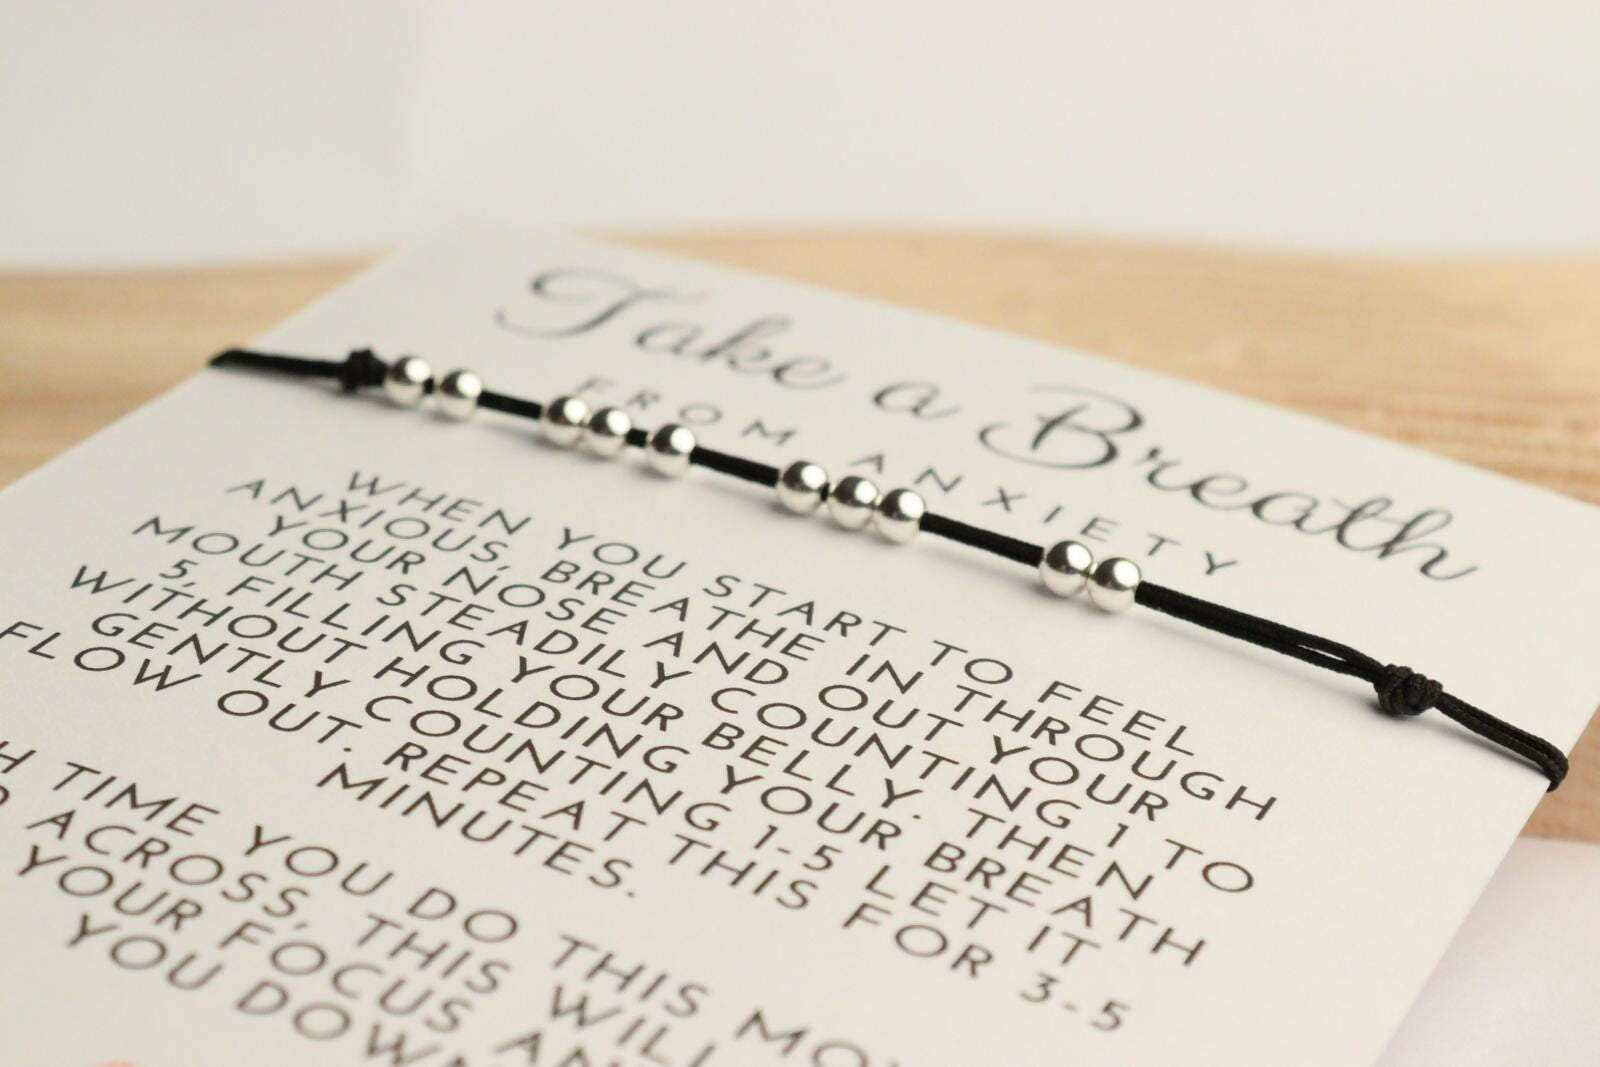 Take a Breath
FROM ANXIETY
WHEN YOU START TO FEEL
ANXIOUS, BREATHE IN THROUGH
YOUR NOSE AND OUT YOUR
MOUTH STEADILY COUNTING 1 TO
5, FILLING YOUR BELLY. THEN
WITHOUT HOLDING YOUR BREATH
GENTLY COUNTING 1-5 LET IT
FLOW OUT. REPEAT THIS FOR 3-5
MINUTES.
TIME YOU DO THIS
ACROSS, THIS WILL
YOUR FOCUS
YOU